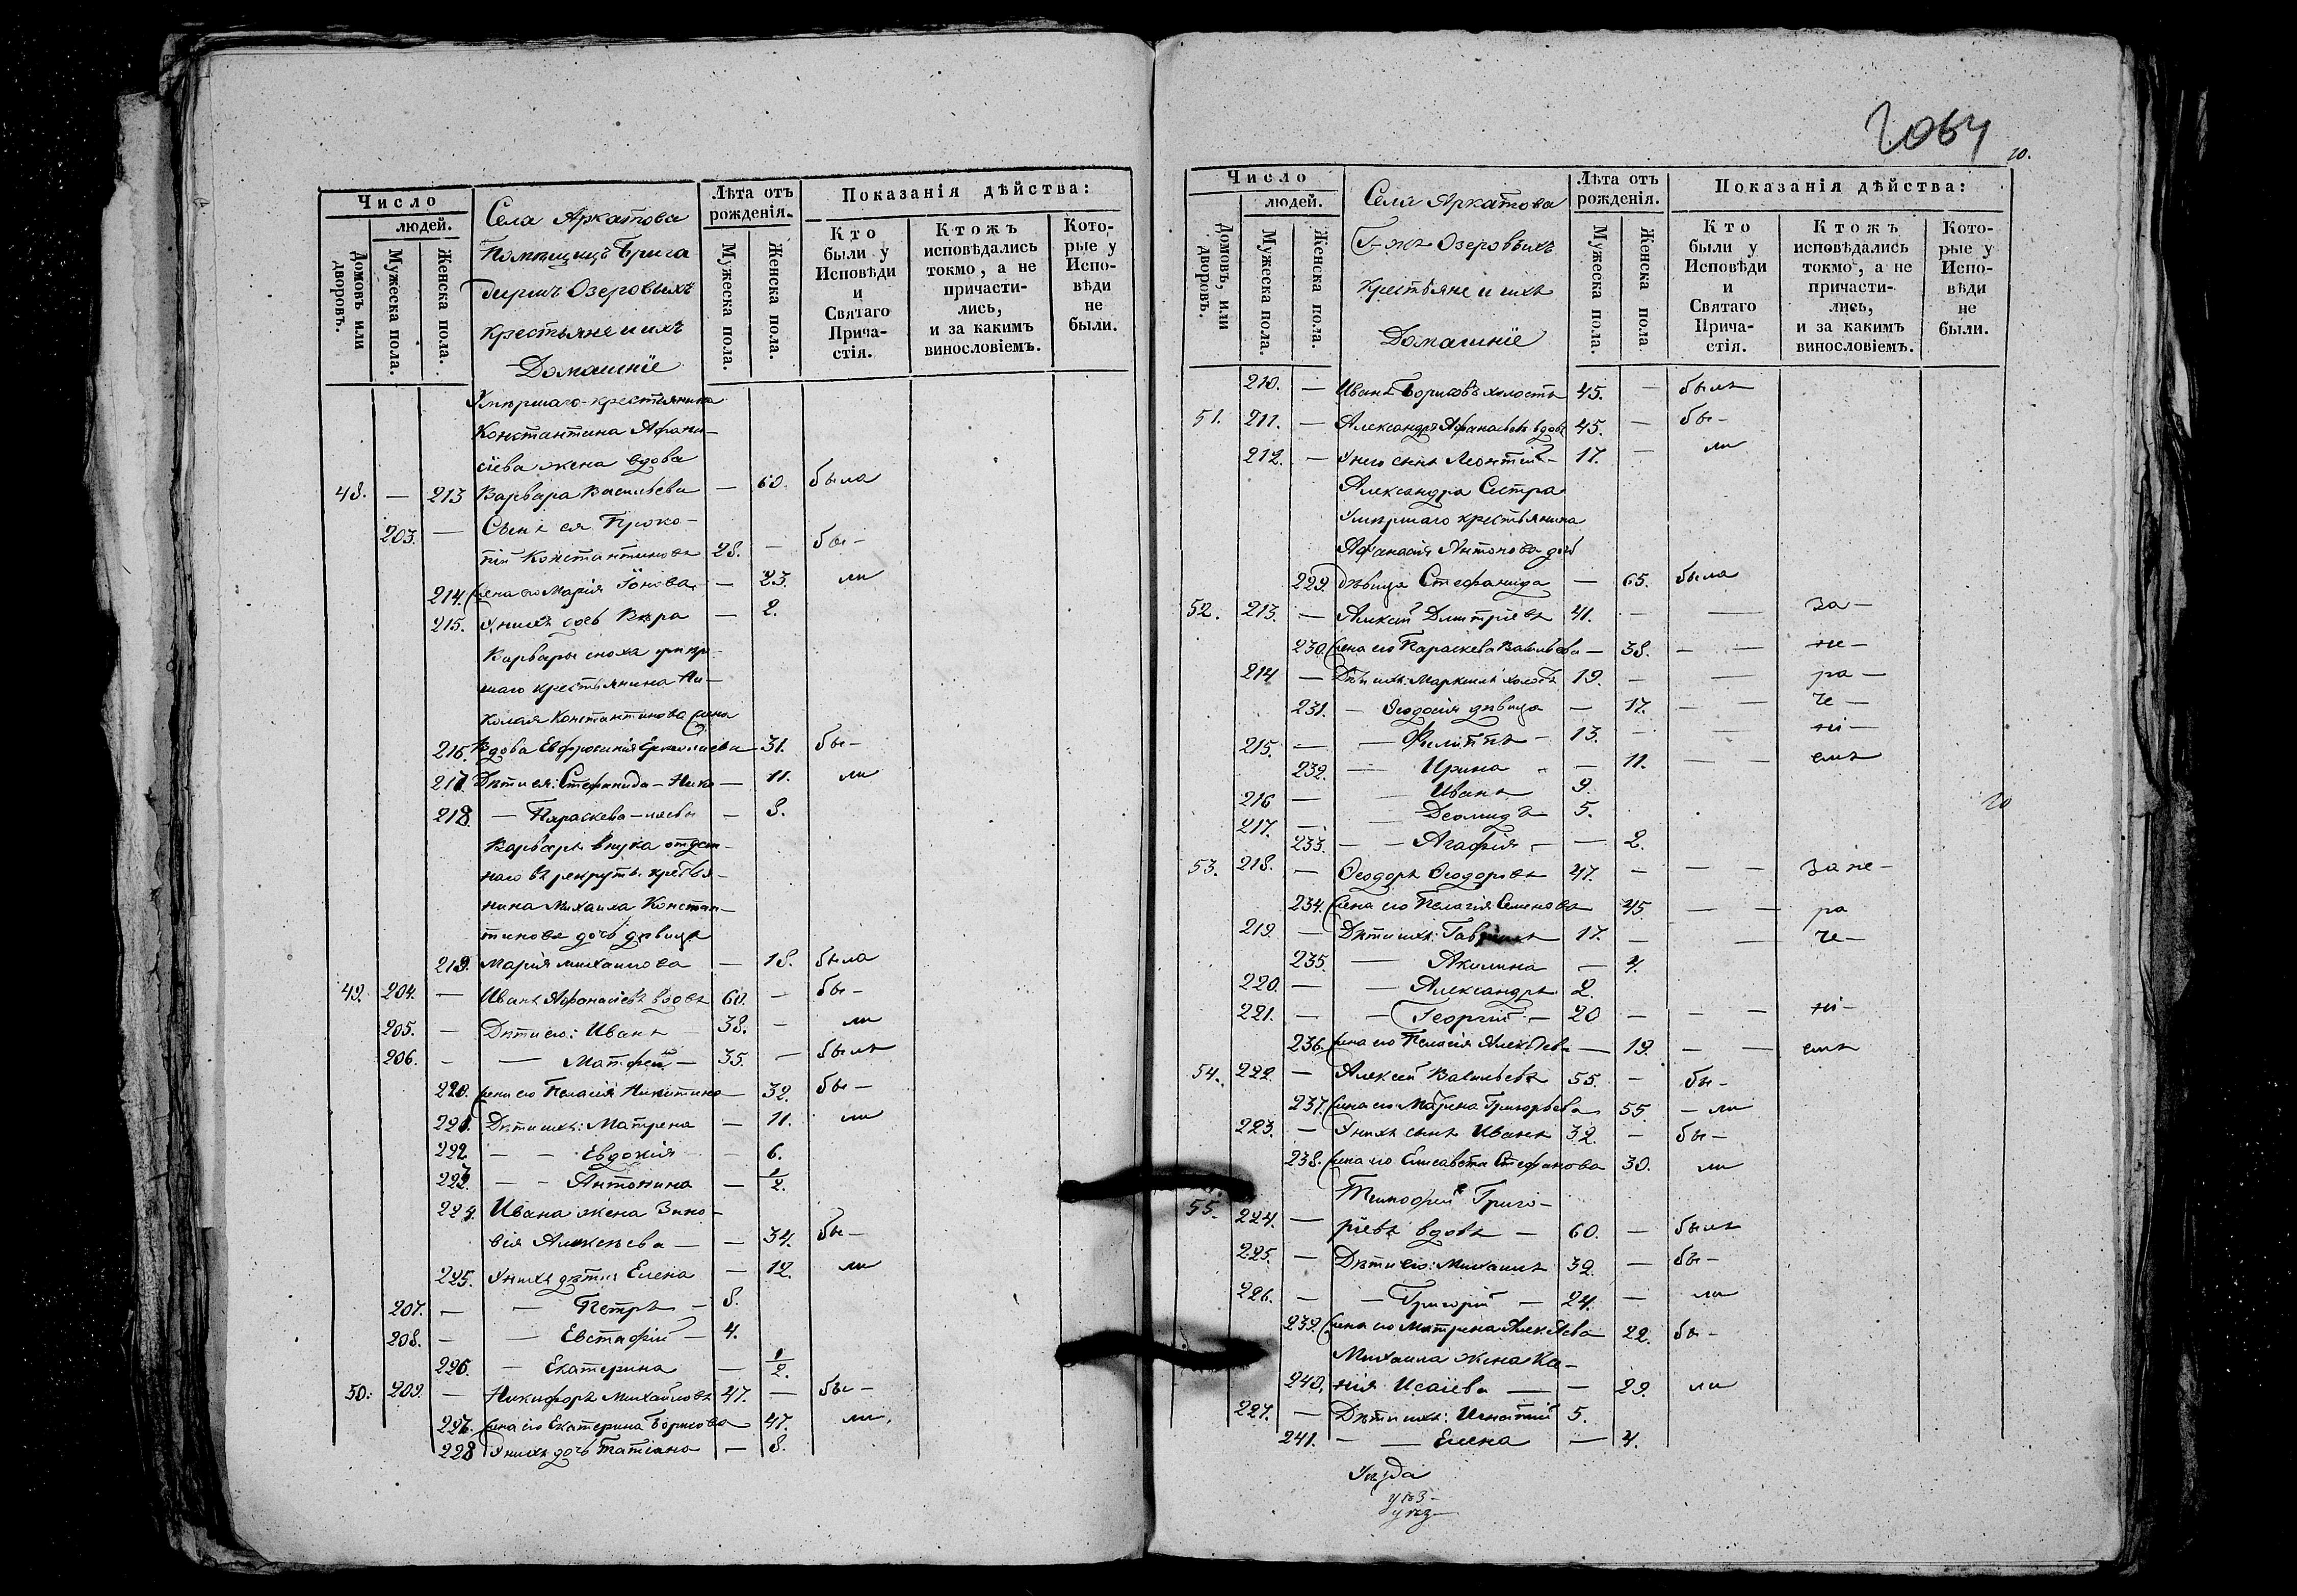 Число
людей.
Домовъ или дворовъ.
Мужеска пола.
Женска пола.
Села Аркатова
Помѣщицъ Брига
диршъ Озеровыхъ
крестьяне и ихъ
Домашніе
Лѣта отъ рожденія.
Мужеска пола.
Женска пола.
Показанія дѣйства:
Кто были у Исповѣди и Святаго Причастія.
Ктожъ исповѣдались токмо, а не причастились, и за какимъ винословіемъ.
Которые у Исповѣди не были.
Умершаго крестьянина
Константина Афана-
сіева жена вдова
48. — 213 Варвара Васильева — 60. была
203. — Сынъ ея Проко-
пій Константиновъ 28. — бы-
214. Жена его Марія Іонова — 23. ли
215. У нихъ дочь Вѣра — 2.
Варвары сноха умер-
шаго крестьянина Ни-
колая Константинова жена
216. Вдова Евфросинія Ермолаева — 31. бы-
217. Дѣти ея: Стефанида — Нико — 11. ли
218. — Параскева — лаевы — 8.
Варвары внука отдан-
наго въ рекруты крестья-
нина Михаила Констан-
тинова дочь дѣвица
219. Марія Михаилова — 18. была
49. 204. — Иванъ Афанасіевъ вдовъ 60. — бы-
205. — Дѣти его: Иванъ 38. — ли
206. — — Матфей — 35. — былъ
220. Жена его Пелагія Никитина — 32. бы-
221. Дѣти ихъ: Матрена — 11. ли
222 — — Евдокія — 6.
223. — — Антонина — 1/2.
224. Ивана жена Зино-
вія Алексѣева — — 34. бы-
225. У нихъ дѣти Елена — 12. ли
207. — — Петръ — 8.
208. — — Евстафій — 4.
226. — Екатерина — 1/2.
50. 209. — Никифоръ Михайловъ 47. — бы-
227. Жена его Екатерина Борисова 47. ли.
228 У нихъ дочь Татіана — 8.
2064
20.
Число
людей.
Домовъ, или дворовъ.
Мужеска пола.
Женска пола.
Села Аркатова
Г-жъ Озеровыхъ
Крестьяне и ихъ
Домашніе
Лѣта отъ рожденія.
Мужеска пола.
Женска пола
Показанія дѣйства:
Кто были у Исповѣди и Святаго Причастія.
Ктожъ исповѣдались токмо, а не причастились, и за какимъ винословіемъ.
Которые у Исповѣди не были.
210. — Иванъ Борисовъ холостъ 45. — былъ
51. 211. — Александръ Афанасьевъ вдовъ 45. — бы-
212. — У него сынъ Леонтій — 17. — ли
Александра Сестра
Умершаго крестьянина
Афанасія Антонова дочь
229. Дѣвица Стефанида — 65. была
52. 213. — Алексѣй Димитріевъ 41. — — за-
230. Жена его Параскева Васильева — 38. — — не-
214 — Дѣти ихъ: Маркеллъ холостъ 19. — — ра-
231. — Ѳеодосія дѣвица — 17. — — че-
215. — — Филиппъ — 13. — — ні-
232. — Ирина — 11. — — емъ
216 — — Иванъ 9.
20
217. — — Деомидъ 5.
233. — — Агафія — — 2.
53. 218. — Ѳеодоръ Ѳеодоровъ 47. — — — за не-
234. Жена его Пелагія Семенова 45. — — ра
219. — Дѣти ихъ: Гавріилъ 17. — — че-
235. — Акилина — 4.
220. — — Александръ 2.
221. — — Георгій — 20 — — — ні-
236. Жена его Пелагія Алексѣева — 19. — — емъ
54. 222. — Алексѣй Васильевъ 55. — бы-
237. Жена его Матрена Григорьева 55 — ли
223. — У нихъ сынъ Иванъ 32. — бы-
238. Жена его Елисавета Стефанова 30. ли
Тимофей Григо-
55. 224. — ріевъ вдовъ — 60. — былъ
225. — Дѣти его: Михаилъ 32. — бы-
226. — — Григорій — 24. — ли
239. Жена его Матрена Алексѣева 22. бы-
Михаила жена Ксе-
240. нія Исаіева — — 29. ли
227. — Дѣти ихъ: Игнатій 5.
241. — — Елена — 4.
Уѣзда
уѣз-
уѣз-